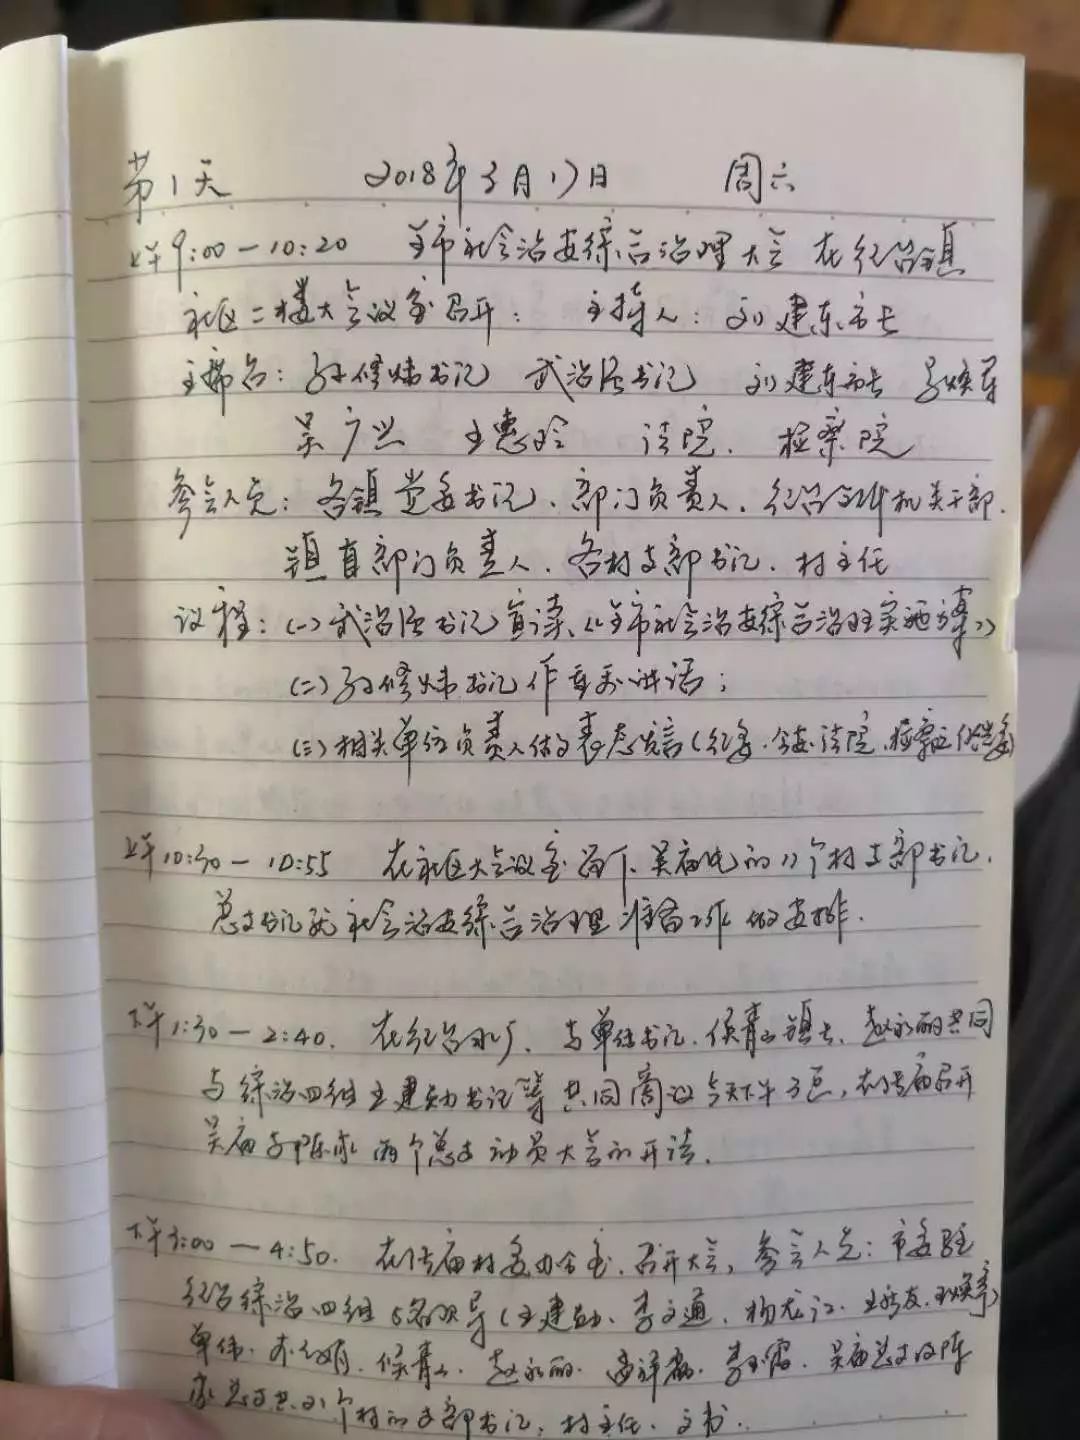 第1天 2018年3月17日 周六
上午9:00—10:20 全市社会治安综合治理大会 在纪台镇
社区二楼大会议室召开: 主持人: 刘建东市长
主席台: 孙修炜书记 武治国书记 刘建东市长
吴广兴 王惠玲 法院. 检察院
参会人员: 各镇党委书记、部门负责人. 纪台全体机关干部.
镇直部门负责人. 各村支部书记. 村主任
议程: (一) 武治国书记宣读《全市社会治安综合治理实施方案》
(二) 孙修炜书记作重要讲话;
(三) 相关单位负责人做了表态发言(纪委. 公安. 法院. 检察
上午10:30—10:55 在社区大会议室留下. 吴庙的11个村支部书记.
总支书记就社会治安综合治理准备工作做安排.
下午1:30—2:40. 在纪台 与单伟书记. 侯青 镇长. 赵永丽共同
与综治四组王建勋书记等共同商议今天下午3点, 在张庙召开
吴庙和陈家两个总支动员大会的开法.
下午3:00—4:50. 在张庙村委办公室. 召开大会, 参会人员: 市委驻
纪台综治四组5名领导(王建勋. 李文通. 杨龙江.
单伟. 侯青 赵永丽. 吴庙总支 陈
家总支共21个村的支部书记, 村主任. 文书.